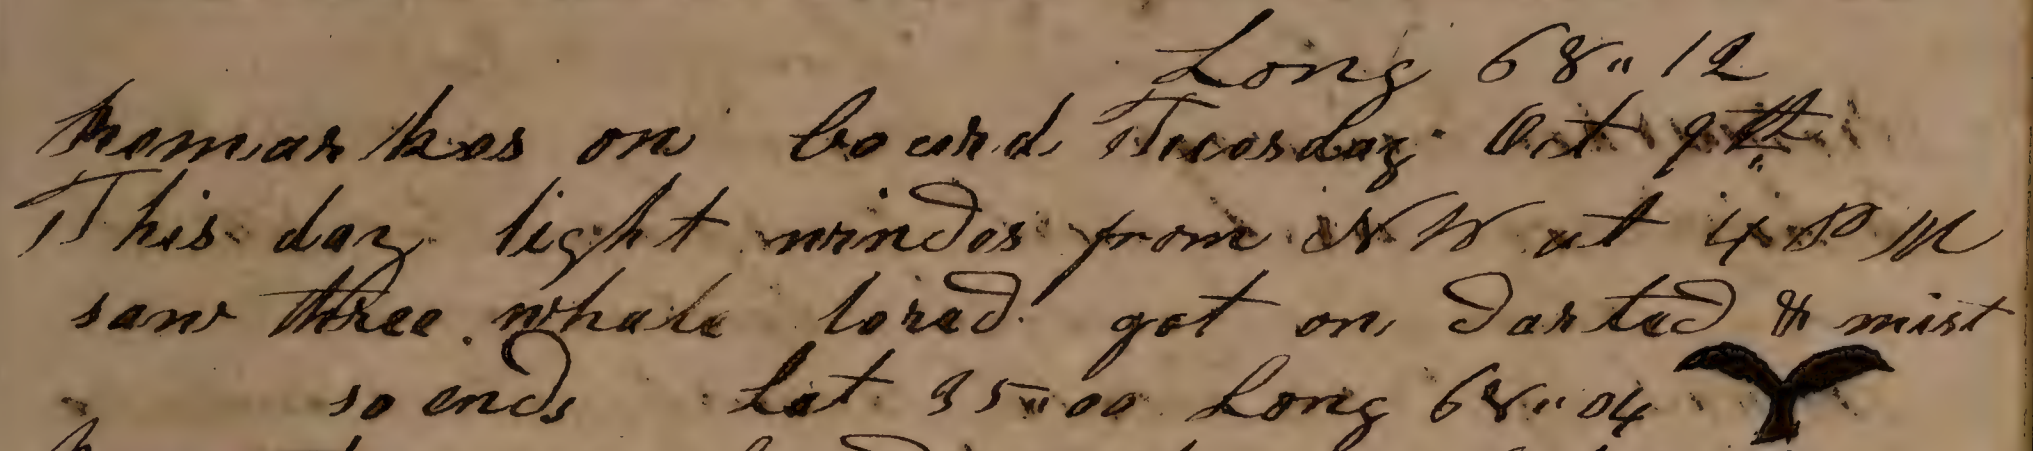 Long 68" 12
Remarkes on board Tuesday Oct 9th
This day light windes from N W at 4 P M
saw three whale lored got on darted & mist
so ends Lat 35" 00 Long 68" 04